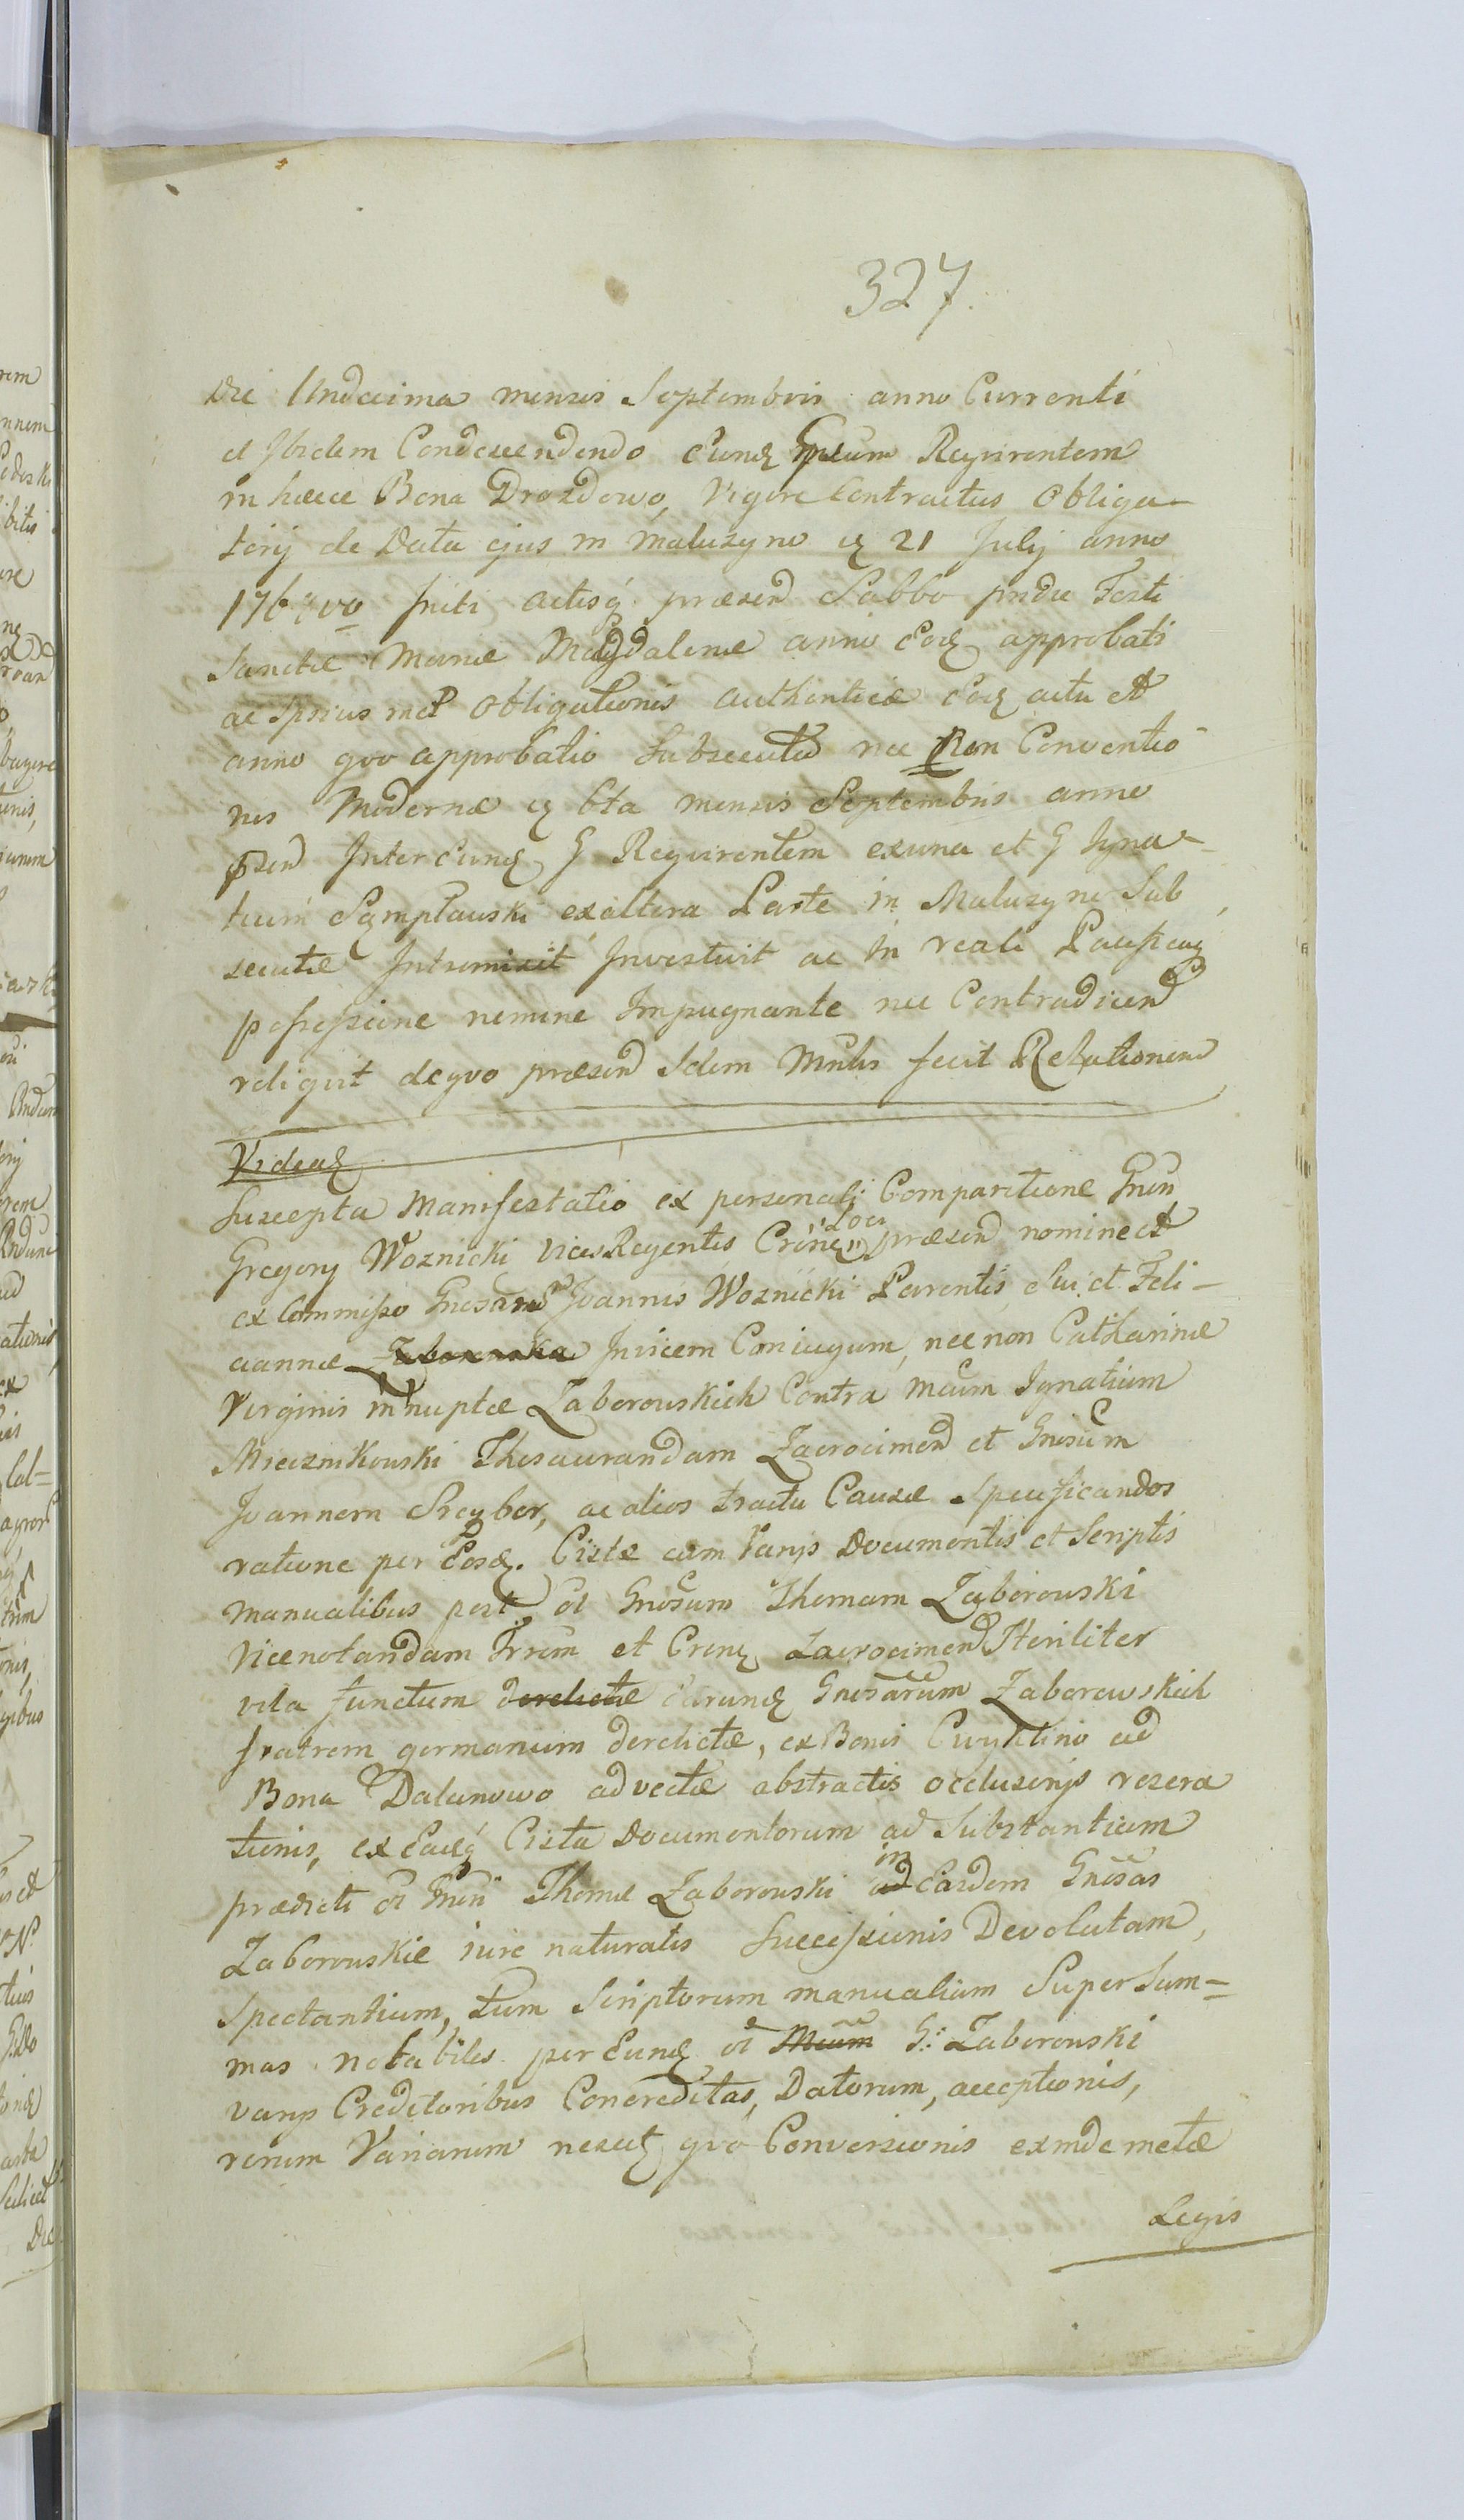 327.
Die Undecima mensis Septembris anno Currenti
et Ibidem Condescendendo Eund Gnsum Reqvirentem
in haece Bona Drozdowo, Vigore Contractus Obliga-
torij de Data ejus in Maluzyno 21 July anno
Initi actisq praesend Sabbo pridie Festi
Sanctae Mariae Magdalenae anno Eod approbati
ac Ipsius met Obligationis authenticae Eod actu et
anno qvo approbatio Subsecuta nec Non Conventio
nis Modernae 6ta mensis Septembris anno
Inter Eund G Reqvirentem exuna et G Igna-
tium exaltera Parte in Maluzyno Sub
secutae Intromisit Investivit ac in reali
possessione nemine Impugnante nec Contradicend
reliqvit deqvo praesend Idem Mnlis fecit Relationem
Videat
Suscepta Manifestatio ex personali Comparitione Gnen
Gregory Woznicki Vices Regentis loci praesend nomine et
ex Commisso Gnesarum Joannis Woznicki Parentis Sui et Feli-
ciannae Zaborowska Invicem Coniugum, nec non Catharinae
Virginis innuptae Zaborowskich Contra Mcum Ignatium
Miecznikowski Thesaurandam Zacrocimend et Gnosum
Joannem Szeyber, ac alios tractu Causae Specificandos
ratione per Eosd. Cistae cum Varijs Documentis et Scriptis
manualibus post ol Gnosum Thomam Zaborowski
Vicenotandam Trrem et Zacrocimend Steriliter
vita functum derelictae Earund Gnosarum Zaborowskich
fratrem germanum derelictae, ex Bonis Cwyklino ad
Bona Dalanowo advectae abstractis occlusorijs resera
tionis, ex Eadq Cista Documentorum ad Substantiam
praedicti ol Gnen Thomae Zaborowski ad in Easdem Gnosas
Zaborowskie iure naturalis Successionis Devolutam,
Spectantium, tum Scriptorum manualium Super Sum=
mas notabiles per Eund ol Mcum G: Zaborowski
varijs Creditoribus Concreditas, Datorum, acceptionis,
rerum Variarum nescit qvo Conversionis exinde metae
Legis